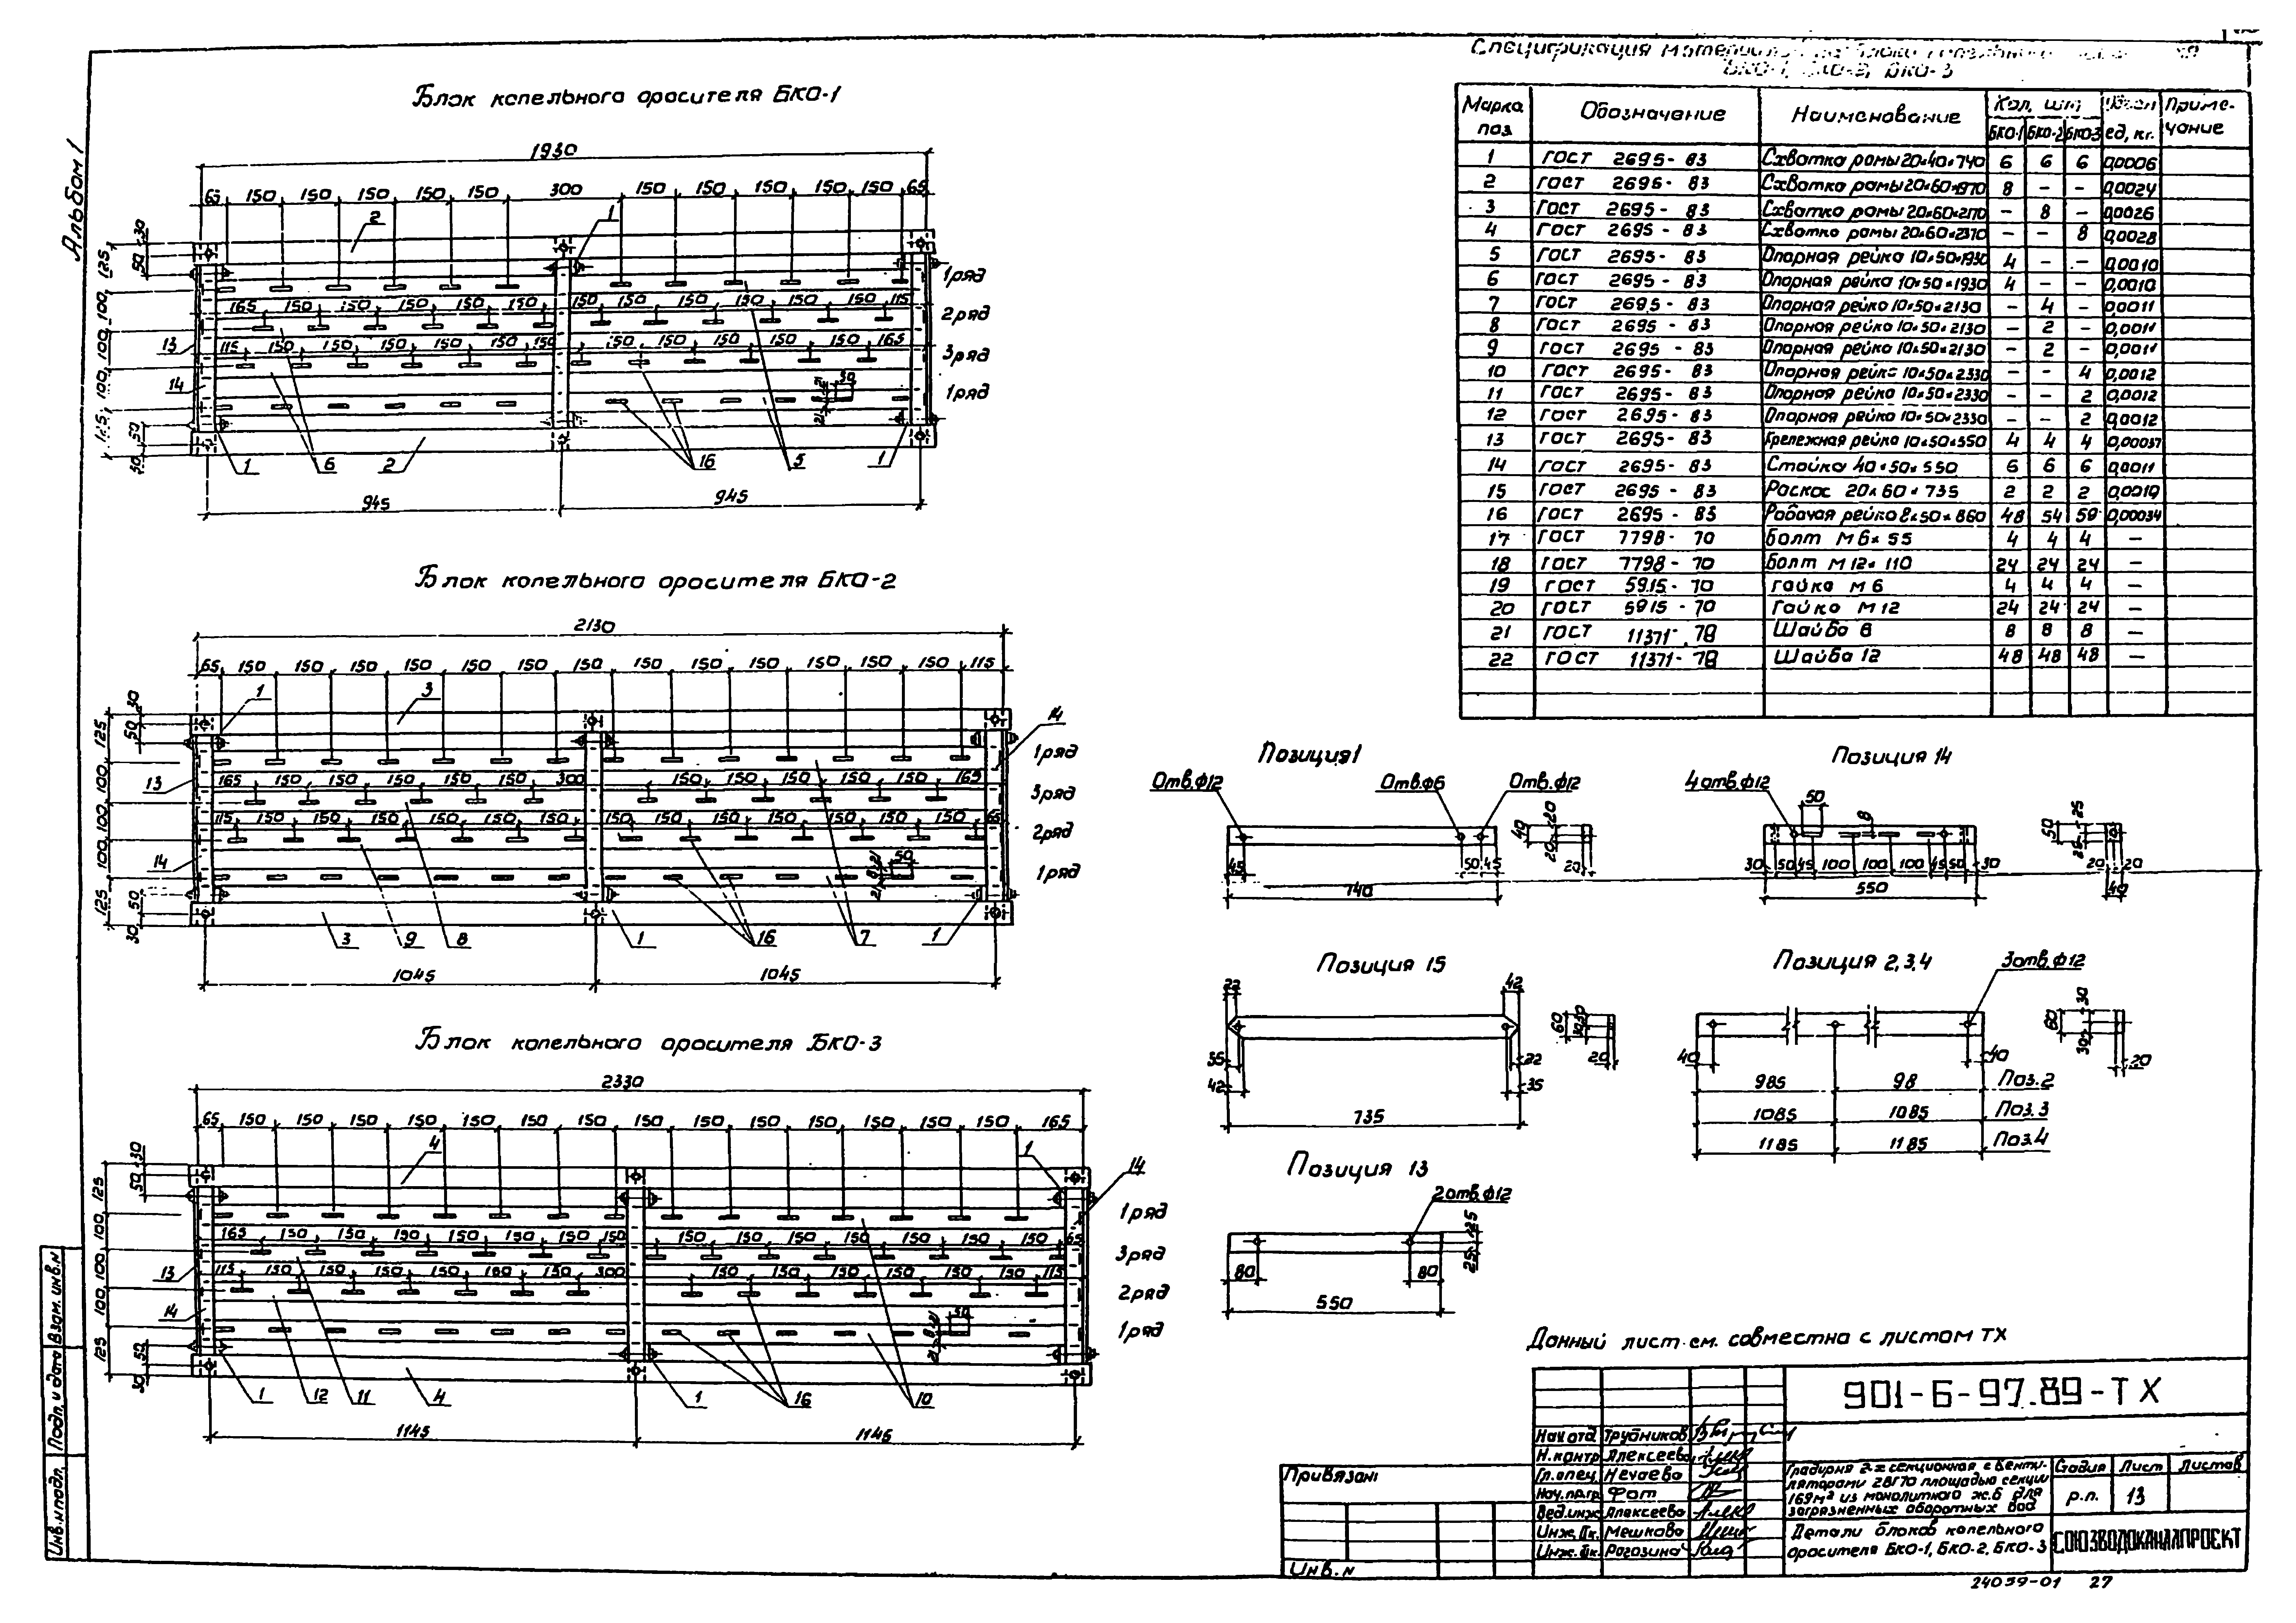 Альбом 1
Блок капельного оросителя БКО-1
1930
65 150 150 150 150 150 300 150 150 150 150 150 65
2 1
30 50 125 100 100 100 125 50 30
1 ряд
165 150 150 150 150 150 150 150 150 150 150 115
2 ряд
13
115 150 150 150 150 150 150 150 150 150 150 165
3 ряд
14
30
1 ряд
1 6 2 16 5 1
945 945
Блок капельного оросителя БКО-2
2130
65 150 150 150 150 150 150 150 150 150 150 150 150 115
1 3 14
30 50 125 100 100 100 125 50 30
1 ряд
13
165 150 150 150 150 150 300 150 150 150 150 165
3 ряд
115 150 150 150 150 150 150 150 150 150 150 150 150 65
2 ряд
14
50
1 ряд
3 9 8 1 16 7 1
1045 1045
Блок капельного оросителя БКО-3
2330
65 150 150 150 150 150 150 150 150 150 150 150 150 150 150 165
4 1 14
30 50 125 100 100 100 125 50 30
1 ряд
165 150 150 150 150 150 150 150 150 150 150 150 150 150 65
3 ряд
13
115 150 150 150 150 150 300 150 150 150 150 150 115
2 ряд
14
50
1 ряд
1 12 11 4 1 16 10
1145 1145
БКО-1, БКО-2, БКО-3
Марка поз. Обозначение Наименование Кол, шт ед, кг. Приме-чание
БКО-1 БКО-2 БКО-3
1 ГОСТ 2695-83 Схватка рамы 20×40×740 6 6 6 0,0006
2 ГОСТ 2695-83 Схватка рамы 20×60×1970 8 - - 0,0024
3 ГОСТ 2695-83 Схватка рамы 20×60×2170 - 8 - 0,0026
4 ГОСТ 2695-83 Схватка рамы 20×60×2370 - - 8 0,0028
5 ГОСТ 2695-83 Опорная рейка 10×50×1930 4 - - 0,0010
6 ГОСТ 2695-83 Опорная рейка 10×50×1930 4 - - 0,0010
7 ГОСТ 2695-83 Опорная рейка 10×50×2130 - 4 - 0,0011
8 ГОСТ 2695-83 Опорная рейка 10×50×2130 - 2 - 0,0011
9 ГОСТ 2695-83 Опорная рейка 10×50×2130 - 2 - 0,0011
10 ГОСТ 2695-83 Опорная рейка 10×50×2330 - - 4 0,0012
11 ГОСТ 2695-83 Опорная рейка 10×50×2330 - - 2 0,0012
12 ГОСТ 2695-83 Опорная рейка 10×50×2330 - - 2 0,0012
13 ГОСТ 2695-83 Крепежная рейка 10×50×550 4 4 4 0,00037
14 ГОСТ 2695-83 Стойка 40×50×550 6 6 6 0,0011
15 ГОСТ 2695-83 Раскос 20×60×735 2 2 2 0,0010
16 ГОСТ 2695-83 Рабочая рейка 8×50×860 48 54 59 0,00034
17 ГОСТ 7798-70 Болт М6×55 4 4 4 -
18 ГОСТ 7798-70 Болт М12×110 24 24 24 -
19 ГОСТ 5915-70 Гайка М6 4 4 4 -
20 ГОСТ 5915-70 Гайка М12 24 24 24 -
21 ГОСТ 11371-78 Шайба 6 8 8 8 -
22 ГОСТ 11371-78 Шайба 12 48 48 48 -
Позиция 1
Отв.ф12 Отв.ф6 Отв.ф12
40 20 20
45 50 45 20
740
Позиция 14
4 отв.ф12 50 8 50 25 25
30 50 45 100 100 100 45 50 30 20 20
550 40
Позиция 15
22 42
60 30 30
35 22 20
42 35
735
Позиция 2,3,4
3 отв.ф12
60 30 30
40 40 20
985 98 Поз.2
1085 1085 Поз.3
1185 1185 Поз.4
Позиция 13
2 отв.ф12
25 25
80 80
550
Данный лист см. совместно с листом ТХ
901-6-97.89-ТХ
Нач.отд Трубников
Н.контр Алексеева
Гл.спец. Нечаева
Нач.пр.гр Фат
Вед.инж Алексеева
Инж.IIк. Мешкова
Инж.IIк. Рагозина
Привязан
Инв.н
Градирня 2-х секционная с венти-
ляторами 2ВГ70 площадью секции
169м² из монолитного ж.б для
загрязненных оборотных вод
Стадия Лист Листов
р.п. 13
Детали блоков капельного
оросителя БКО-1, БКО-2, БКО-3
СОЮЗВОДОКАНАЛПРОЕКТ
24039-01 27
Взам. инв.н
Подп. и дата
Инв.н подл.